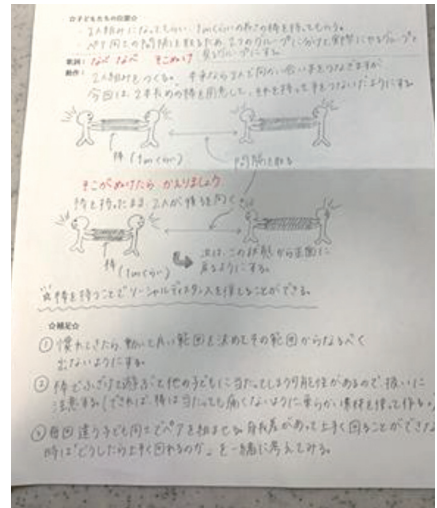 ☆子どもたちの位置☆
・2人組みになってもらい、1mくらいの長さの棒を持ってもらう。
・ペア同士の間隔を取るため、2つのグループに分けて実際にやるグループと
見るグループにする。
歌詞: なべ なべ そこぬけ
動作: 2人組みをつくる。本来なら2人で向かい合い手をつなぎますが
今回は、2本の棒を用意して、それを持って手をつないだようにする。
棒(1mくらい)
間隔を取る
そこがぬけたら かえりましょう
棒を持ったまま、2人が後ろを向く。
棒
(1mくらい)
次は、この状態から正面に
戻るようにする。
☆棒を持つことでソーシャルディスタンスを保てることができる。
☆補足☆
① 慣れてきたら、動いて良い範囲を決めてその範囲からなるべく
出ないようにする。
② 棒でふざけて遊ぶと他の子どもに当たってしまう可能性があるので扱いに
注意する。(できれば、棒は当たっても痛くないように柔らかい素材を使って作る。)
毎回違う子ども同士でペアを組ませる。身長差があって上手く回ることができない
時は「どうしたら上手く回れるのか」を一緒に考えてみる。